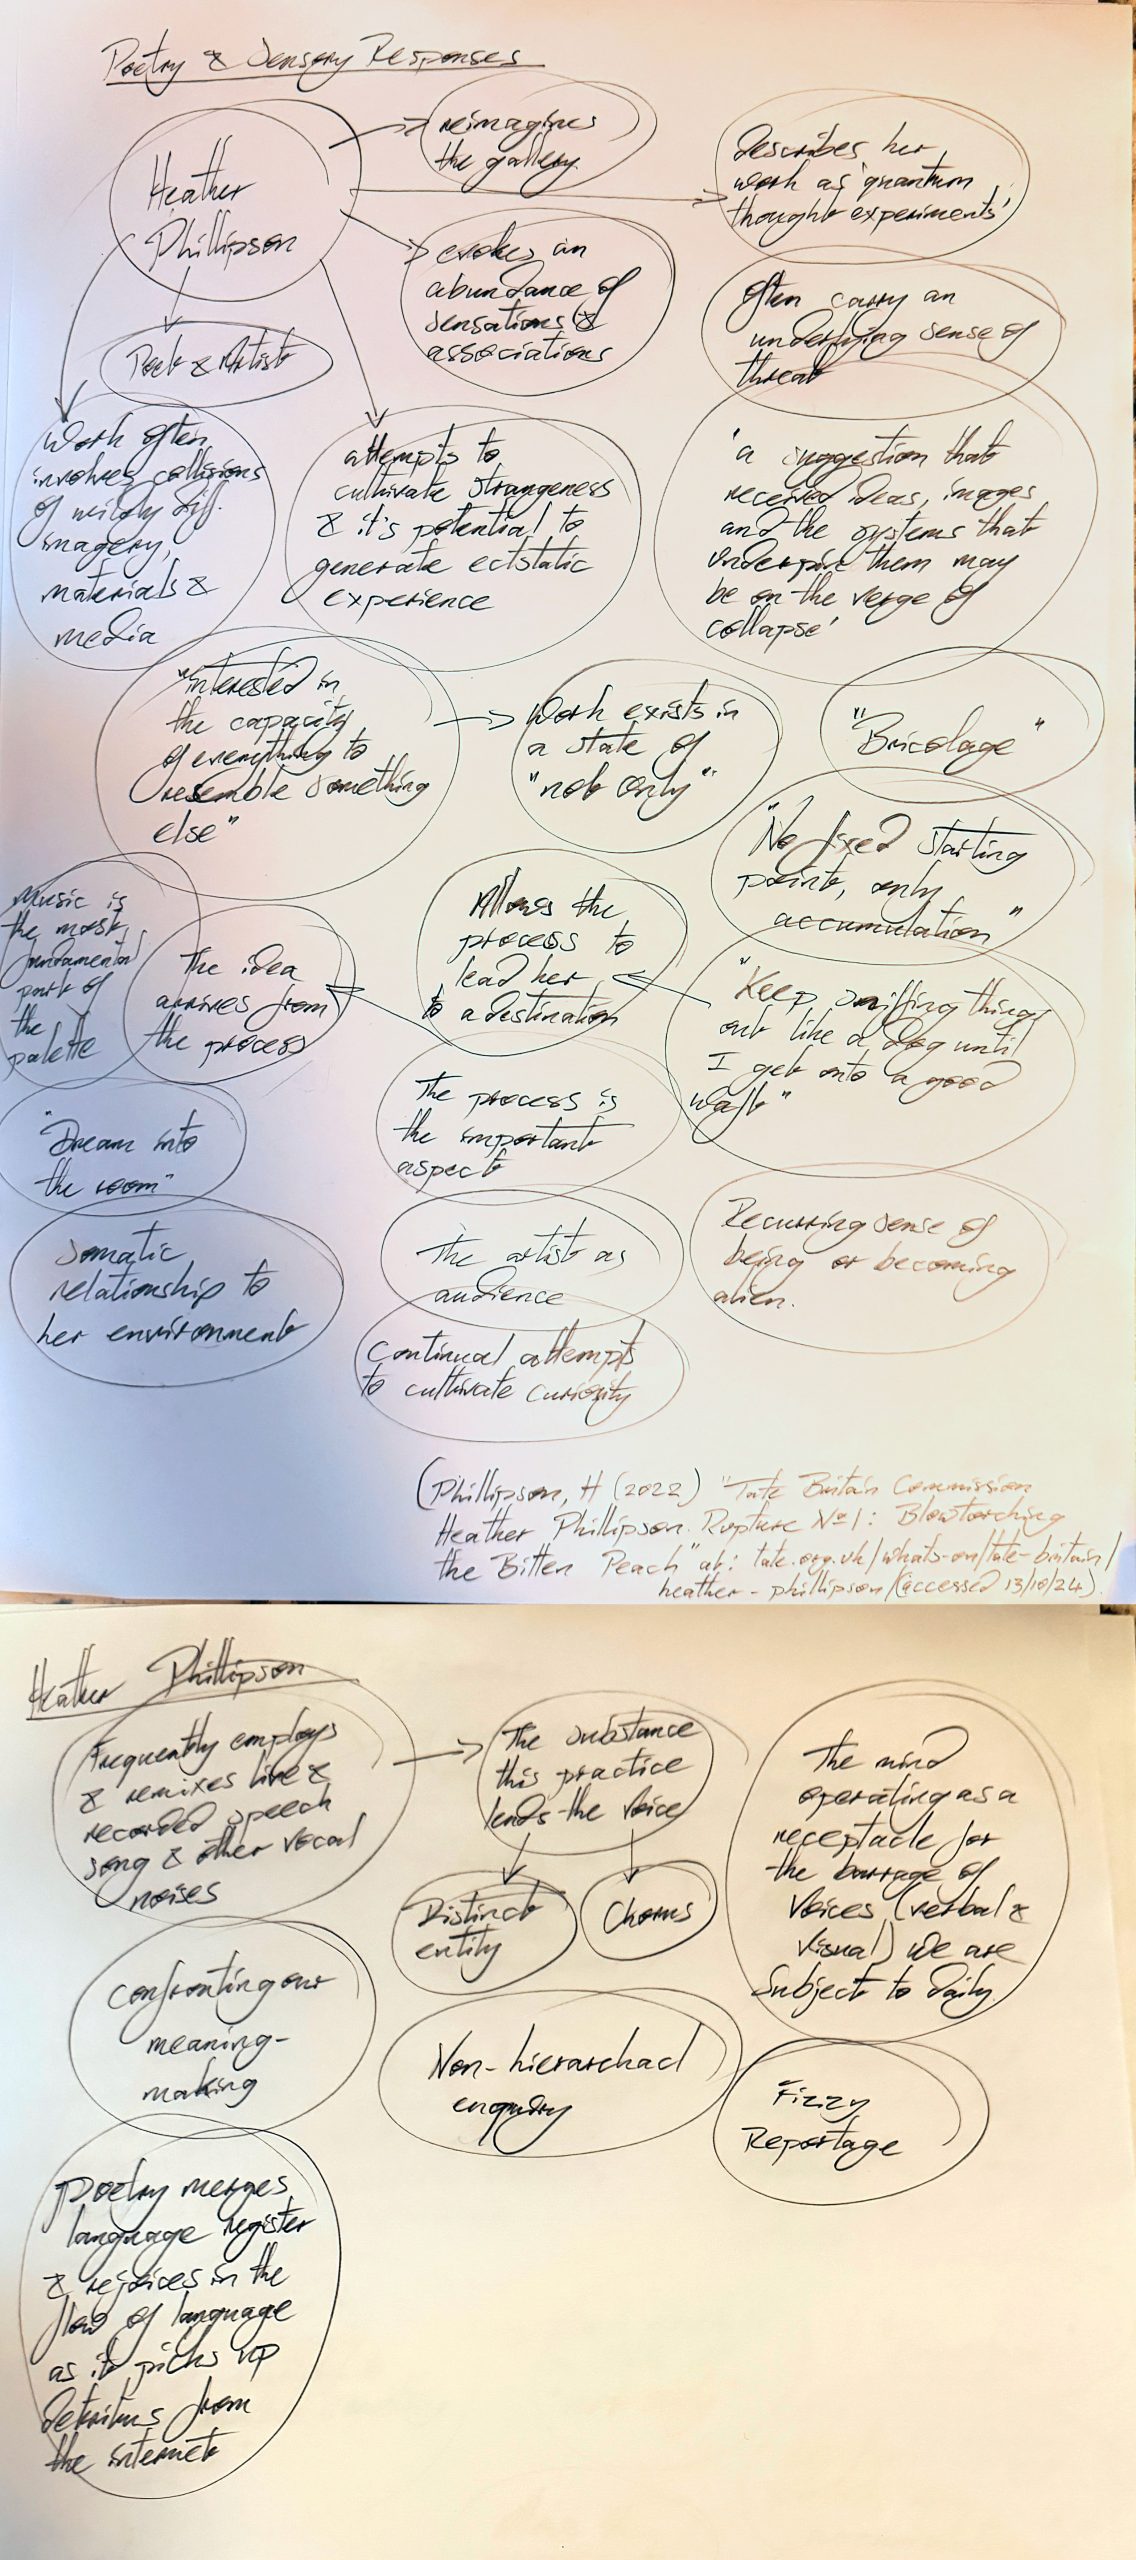 Poetry & Sensory Responses
Heather
Phillipson
reimagines
the gallery
describes her
work as 'quantum
thought experiments'
evokes an
abundance of
sensations &
associations
Often carry an
underlying sense of
threat
Poet & Artist
Work often
involves collisions
of wildly diff.
imagery,
materials &
media
attempts to
cultivate strangeness
& it's potential to
generate ectstatic
experience
'a suggestion that
received ideas, images
and the systems that
underpin them may
be on the verge of
collapse'
"interested in
the capacity
of everything to
resemble something
else"
Work exists in
a state of
"not only"
"Bricolage"
"No fixed starting
point, only
accumulation"
Music is
the most
fundamental
part of
the
palette
The idea
arrives from
the process
Allows the
process to
lead her
to a destination
"Keep sniffing things
out like a dog until
I get onto a good
waft"
The process is
the important
aspect
"Dream into
the room"
Somatic
relationship to
her environment
The artist as
audience
Recurring sense of
being or becoming
alien.
Continual attempts
to cultivate curiosity
(Phillipson, H (2022) "Tate Britain Commission
Heather Phillipson. Rupture No1: Blowtorching
the Bitten Peach" at: tate.org.uk/whats-on/tate-britain/
heather-phillipson/(accessed 13/10/24).
Heather Phillipson
Frequently employs
& remixes live &
recorded speech
song & other vocal
noises
The substance
this practice
lends the voice
Distinct
entity
Chorus
The mind
operating as a
receptacle for
the barrage of
voices (verbal &
visual) we are
Subject to daily.
Confronting our
meaning-
making
Non-hierarchacl
enquiry
Fizzy
Reportage
Poetry merges
language register
& rejoices in the
flow of language
as it picks up
detritus from
the internet